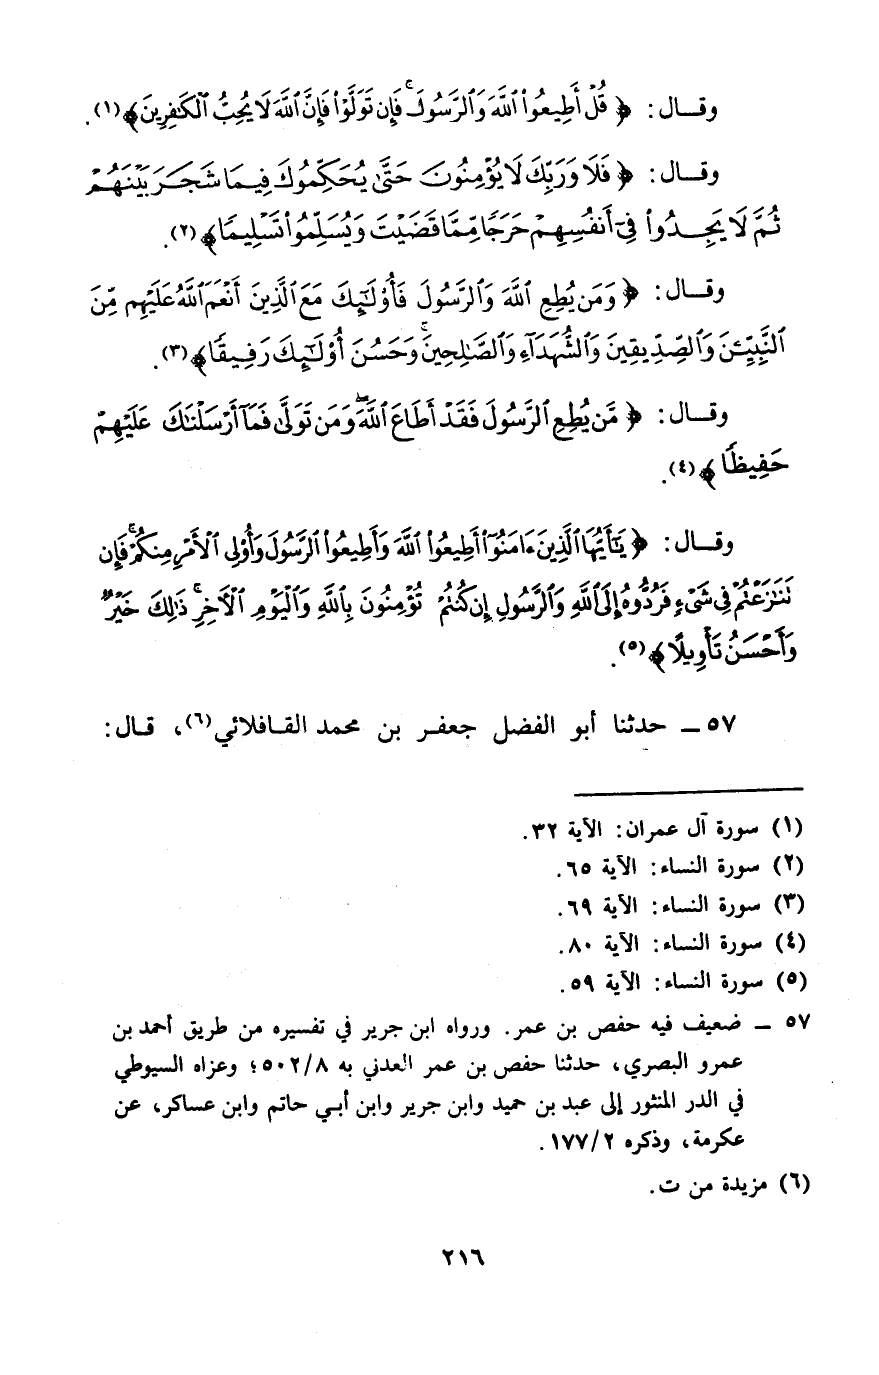 وقــال: ﴿ قُلْ أَطِيعُوا۟ ٱللَّهَ وَٱلرَّسُولَ ۖ فَإِن تَوَلَّوْا۟ فَإِنَّ ٱللَّهَ لَا يُحِبُّ ٱلْكَٰفِرِينَ﴾(١).
وقــال: ﴿ فَلَا وَرَبِّكَ لَا يُؤْمِنُونَ حَتَّىٰ يُحَكِّمُوكَ فِيمَا شَجَرَ بَيْنَهُمْ
ثُمَّ لَا يَجِدُوا۟ فِىٓ أَنفُسِهِمْ حَرَجًا مِّمَّا قَضَيْتَ وَيُسَلِّمُوا۟ تَسْلِيمًا﴾(٢).
وقــال: ﴿ وَمَن يُطِعِ ٱللَّهَ وَٱلرَّسُولَ فَأُو۟لَٰٓئِكَ مَعَ ٱلَّذِينَ أَنْعَمَ ٱللَّهُ عَلَيْهِم مِّنَ
ٱلنَّبِيِّـۧنَ وَٱلصِّدِّيقِينَ وَٱلشُّهَدَآءِ وَٱلصَّٰلِحِينَ ۚ وَحَسُنَ أُو۟لَٰٓئِكَ رَفِيقًا﴾(٣).
وقــال: ﴿ مَّن يُطِعِ ٱلرَّسُولَ فَقَدْ أَطَاعَ ٱللَّهَ ۖ وَمَن تَوَلَّىٰ فَمَآ أَرْسَلْنَٰكَ عَلَيْهِمْ
حَفِيظًا ﴾(٤).
وقــال: ﴿ يَٰٓأَيُّهَا ٱلَّذِينَ ءَامَنُوٓا۟ أَطِيعُوا۟ ٱللَّهَ وَأَطِيعُوا۟ ٱلرَّسُولَ وَأُو۟لِى ٱلْأَمْرِ مِنكُمْ ۖ فَإِن
تَنَٰزَعْتُمْ فِى شَىْءٍ فَرُدُّوهُ إِلَى ٱللَّهِ وَٱلرَّسُولِ إِن كُنتُمْ تُؤْمِنُونَ بِٱللَّهِ وَٱلْيَوْمِ ٱلْءَاخِرِ ۚ ذَٰلِكَ خَيْرٌ
وَأَحْسَنُ تَأْوِيلًا﴾(٥).
٥٧ ــ حدثنا أبو الفضل جعفـر بن محمد القـافلائي(٦)، قـال:
(١) سورة آل عمران: الآية ٣٢.
(٢) سورة النساء: الآية ٦٥.
(٣) سورة النساء: الآية ٦٩.
(٤) سورة النساء: الآية ٨٠.
(٥) سورة النساء: الآية ٥٩.
٥٧ ــ ضعيف فيه حفص بن عمر. ورواه ابن جرير في تفسيره من طريق أحمد بن
عمرو البصري، حدثنا حفص بن عمر العدني به ٥٠٢/٨؛ وعزاه السيوطي
في الدر المنثور إلى عبد بن حميد وابن جرير وابن أبـي حاتم وابن عساكر، عن
عكرمة، وذكره ١٧٧/٢.
(٦) مزيدة من ت.
٢١٦